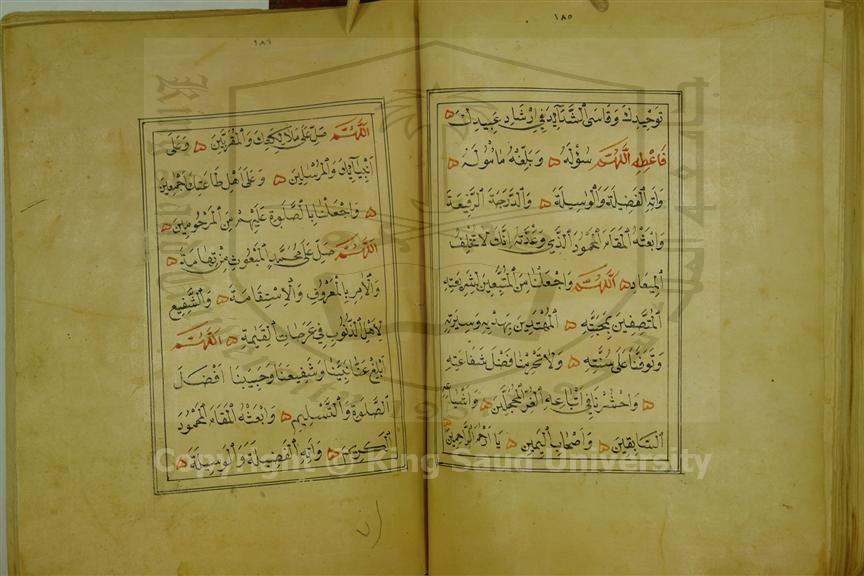 ١٨٥
توحيدك وقاسى الشدائد في ارشاد عبيدك
فاعطه اللهم سؤله وبلغه مأموله
واته الفضيلة والوسيلة والدرجة الرفيعة
وابعثه المقام المحمود الذي وعدته انك لا تخلف
الميعاد اللهم واجعلنا من المتبعين لشريعته
المتصفين بمحبته المهتدين بهديه وسيرته
وتوفنا على سنته ولا تحرمنا فضل شفاعته
واحشرنا في اتباعه الغر المحجلين واشياعه
السابقين واصحاب اليمين يا ارحم الراحمين
١٨٦
اللهم صل على ملائكتك والمقربين وعلى
انبيائك والمرسلين وعلى اهل طاعتك اجمعين
واجعلنا بالصلوة عليهم من المرحومين
اللهم صل على محمد المبعوث من تهامة
والامر بالمعروف والاستقامة والشفيع
لاهل الذنوب في عرصات القيمة اللهم
ابلغ عنا نبينا وشفيعنا وحبيبنا افضل
الصلوة والتسليم وابعثه المقام المحمود
الكريم واته الفضيلة والوسيلة
Copyright © King Saud University